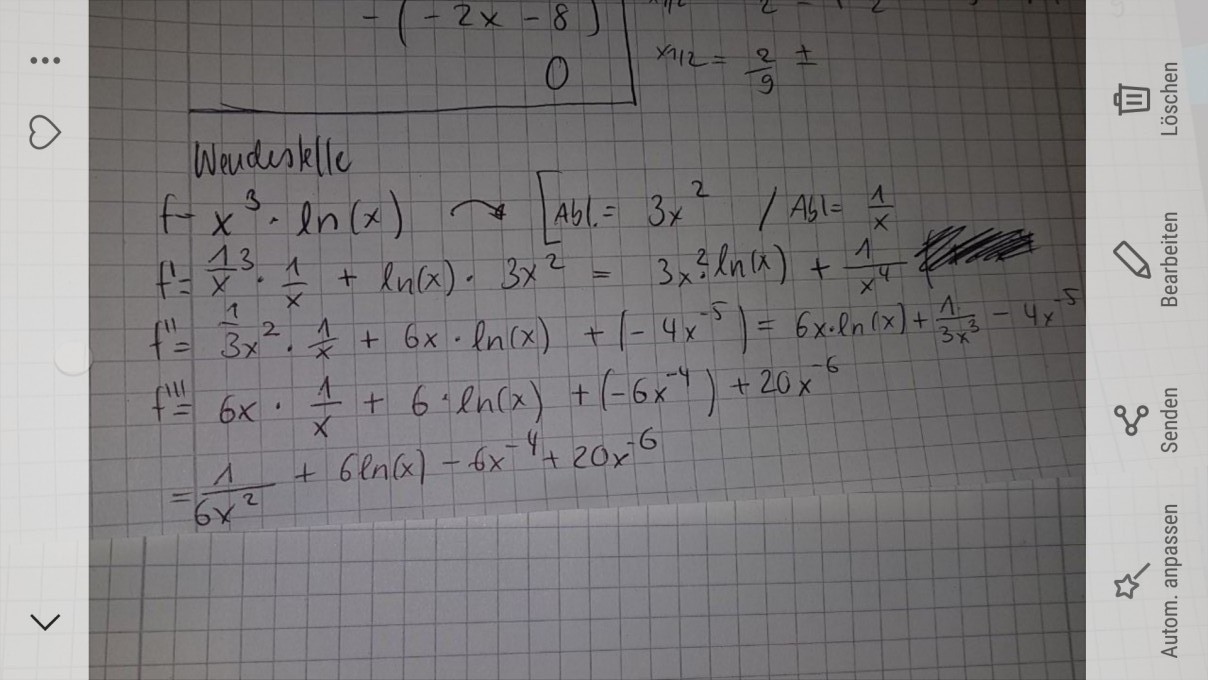 - (-2x - 8)
0
x1/2 = 2/9 ±
Wendestelle
f= x³ · ln(x) → [Abl. = 3x² / Abl= 1/x
f'= 1/x³ · 1/x + ln(x) · 3x² = 3x² · ln(x) + 1/x⁴
f''= 1/3x² · 1/x + 6x · ln(x) + (-4x⁻⁵) = 6x·ln(x) + 1/3x³ - 4x⁻⁵
f'''= 6x · 1/x + 6 · ln(x) + (-6x⁻⁴) + 20x⁻⁶
= 1/6x² + 6ln(x) - 6x⁻⁴ + 20x⁻⁶
Löschen
Bearbeiten
Senden
Autom. anpassen